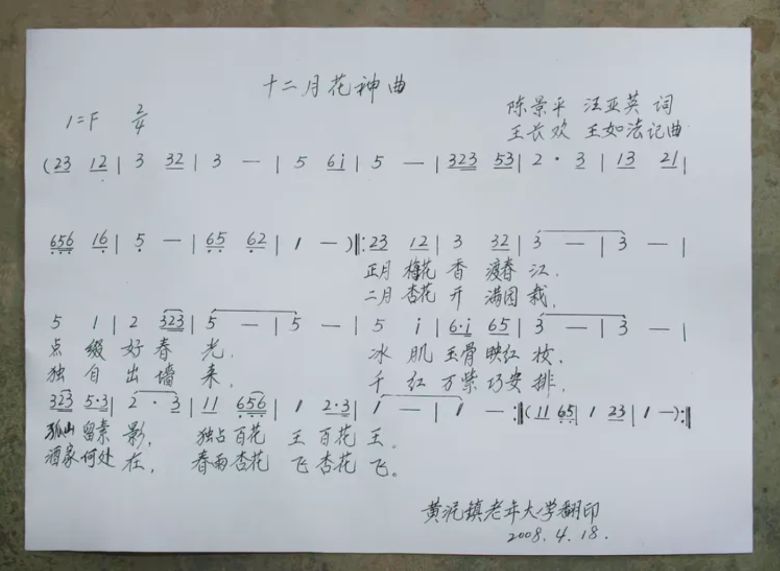 十二月花神曲
1=F 2/4
陈景平 汪亚英 词
王长欢 王如法记曲
(23 12 | 3 32 | 3 — | 5 6i | 5 — | 323 53 | 2 · 3 | 13 21 |
656 16 | 5 — | 65 62 | 1 — ) ‖: 23 12 | 3 32 | 3 — | 3 — |
正月 梅花 香 渡春 江.
二月 杏花 开 满园 栽.
5 1 | 2 323 | 5 — | 5 — | 5 i | 6·i 65 | 3 — | 3 — |
点 缀 好 春 光. 冰 肌 玉骨 映红 妆.
独 自 出 墙 来. 千 红 万紫 巧安 排,
323 5·3 | 2 · 3 | 11 656 | 1 2·3 | 1 — | 1 — :‖ (11 65 | 1 23 | 1 —) :‖
孤山 留素 影, 独占 百花 王 百花 王。
酒家 何处 在, 春雨 杏花 飞 杏花 飞。
黄泥镇老年大学翻印
2008.4.18.